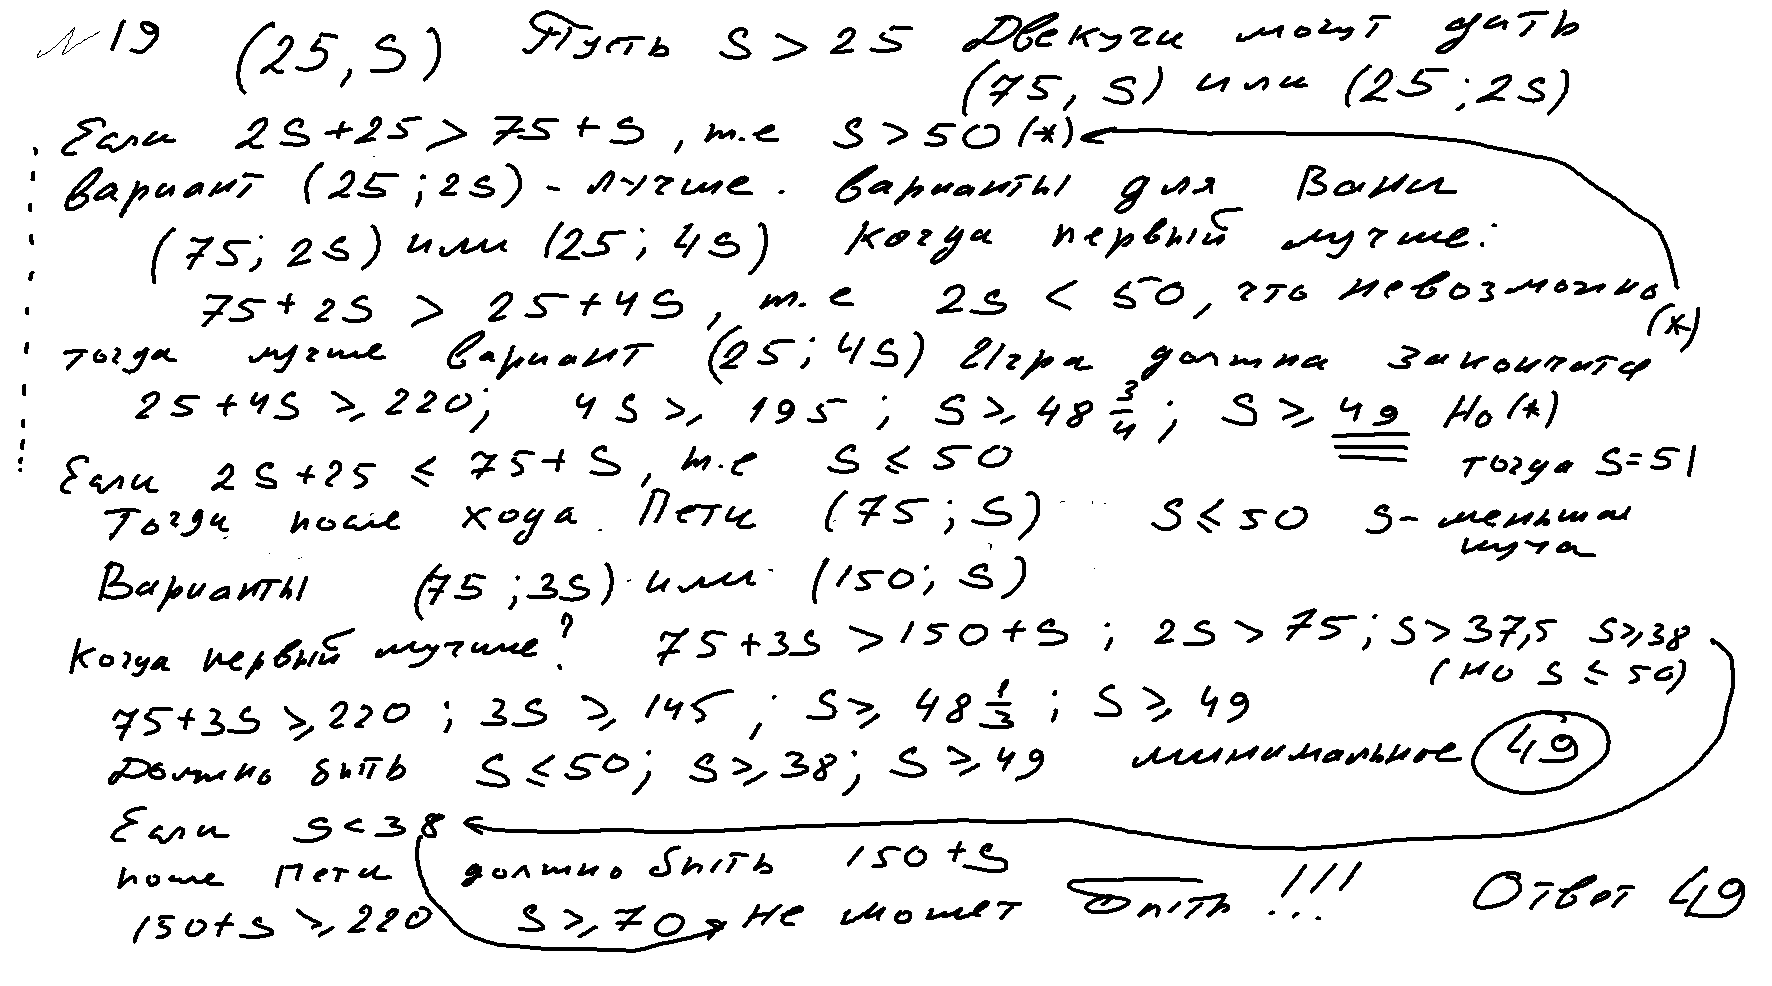 №19 (25, S) Пусть S > 25 Две кучи могут дать
(75, S) или (25; 2S)
Если 2S+25 > 75+S, т.е S > 50 (*)
вариант (25; 2S) - лучше. варианты для Вани
(75; 2S) или (25; 4S) когда первый лучше:
75+2S > 25+4S, т.е 2S < 50, что невозможно
(*)
тогда лучше вариант (25; 4S) Игра должна закончится
25+4S ⩾ 220; 4S ⩾ 195; S ⩾ 48 3/4; S ⩾ 49 Но (*)
тогда S=51
Если 2S+25 ≤ 75+S, т.е S ≤ 50
Тогда после хода Пети (75; S) S ≤ 50 S - меньшая
куча
Варианты (75; 3S) или (150; S)
Когда первый лучше? 75+3S > 150+S; 2S > 75; S > 37,5 S⩾38
(но S ≤ 50)
75+3S ⩾ 220; 3S ⩾ 145; S ⩾ 48 1/3; S ⩾ 49
Должно быть S ≤ 50; S ⩾ 38; S ⩾ 49 минимальное 49
Если S < 38
после Пети должно быть 150+S
150+S ⩾ 220 S ⩾ 70 не может быть!!! Ответ 49